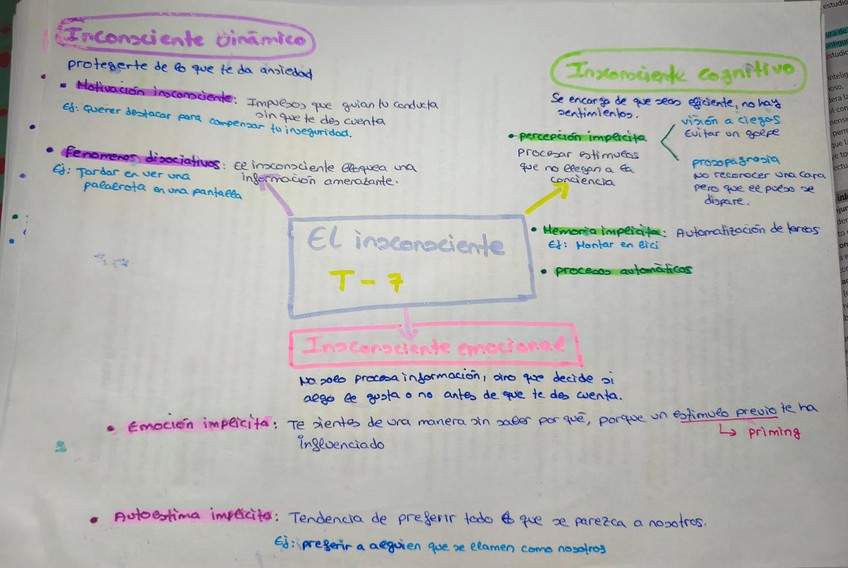 Inconsciente Dinámico
protegerte de lo que te da ansiedad
• Motivación insconsciente: Impulsos que guian tu conducta
sin que te des cuenta
Ej: Querer destacar para compensar tu inseguridad.
• Fenomenos disociativos: El insconsciente bloquea una
información amenazante.
Ej: Tardar en ver una
palabrota en una pantalla
Insconsciente cognitivo
Se encarga de que seas eficiente, no hay
sentimientos.
• percepción implícita
Procesar estimulos
que no llegan a la
conciencia
visión a ciegas
Evitar un golpe
prosopagnosia
No reconocer una cara
pero que el pulso se
dispare.
• Memoria implícita: Automatización de tareas
Ej: Montar en bici
• procesos automáticos
El insconsciente
T - 7
Insconsciente emocional
No solo procesa información, sino que decide si
algo le gusta o no antes de que te des cuenta.
• Emoción implícita: Te sientes de una manera sin saber por qué, porque un estimulo previo te ha
influenciado
↳ priming
• Autoestima implícita: Tendencia de preferir todo lo que se parezca a nosotros.
Ej: preferir a alguien que se llamen como nosotros